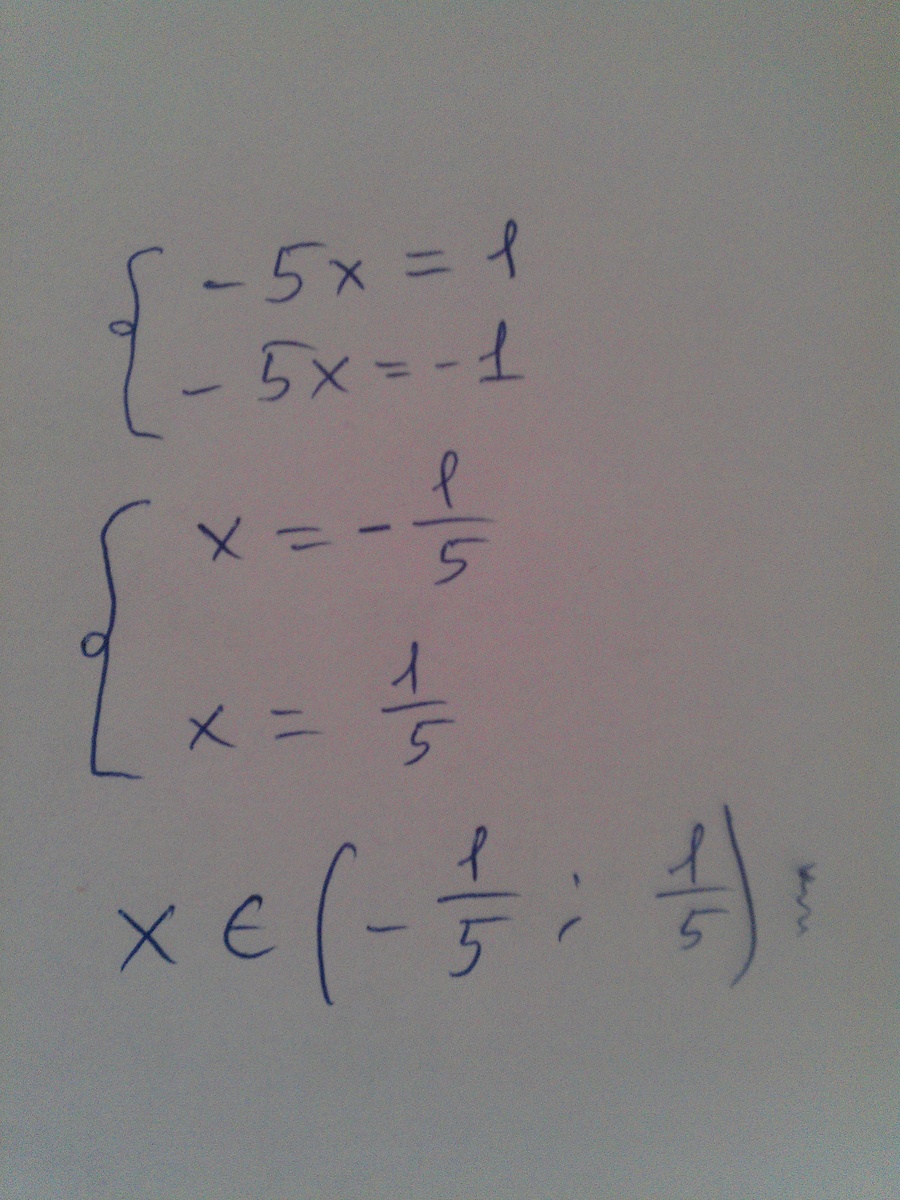 - 5x = 1
- 5x = -1
x = - 1/5
x = 1/5
x ∈ (- 1/5 ; 1/5)